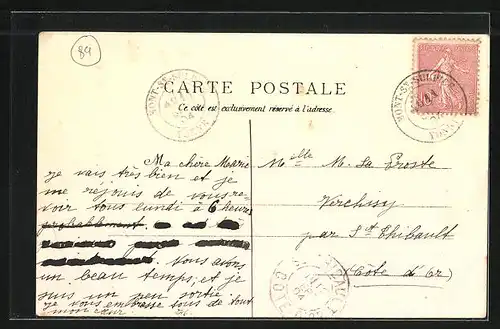 89
CARTE POSTALE
Ce côté est exclusivement réservé à l'adresse.
MONT-ST-SULPICE
YONNE
MONT-ST-SULPICE
YONNE
Ma chère Marie
je vais très bien et je
me réjouis de vous re-
voir tous lundi à 6 heures
probablement
Nous avons
un beau temps, et je
suis un peu sortie.
je vous embrasse tous de tout
mon cœur M.
Melle M. La Proste
Verchisy
par St Thibault
(Côte d'Or)
CÔTE D'OR